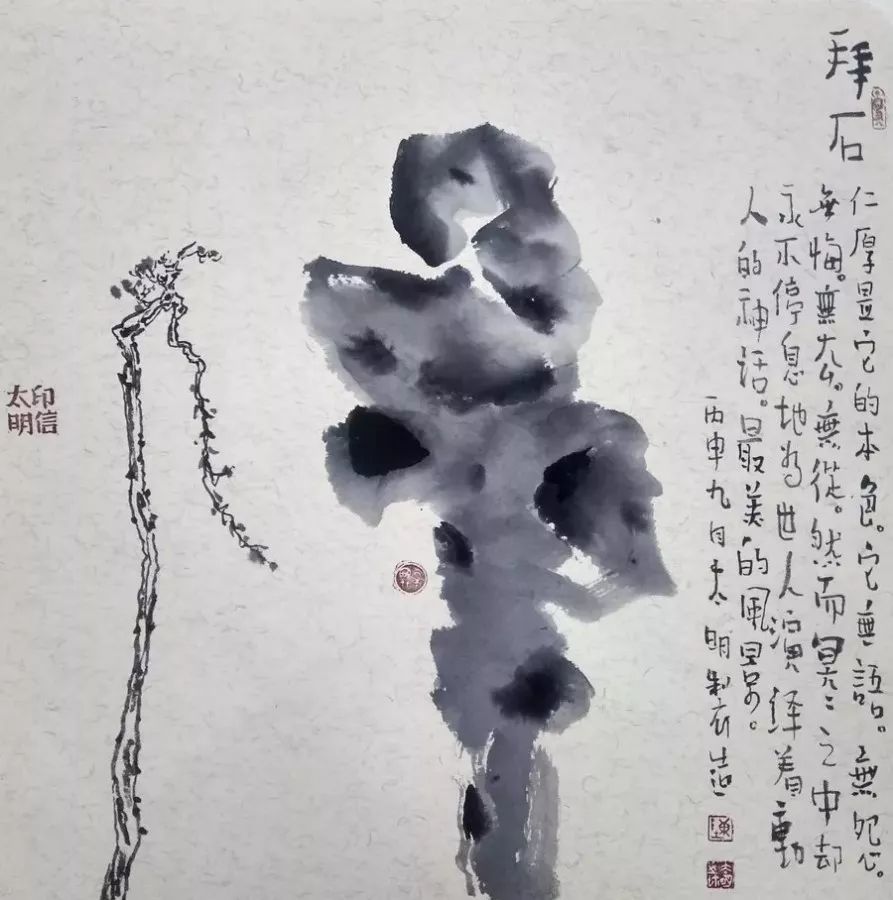 拜石
仁厚是它的本色。它無語。無怨。
無悔。無。無從。然而冥冥之中却
永不停息地为世人演绎着動
人的神话。最美的風景。
丙申九月太明制
太明
印信